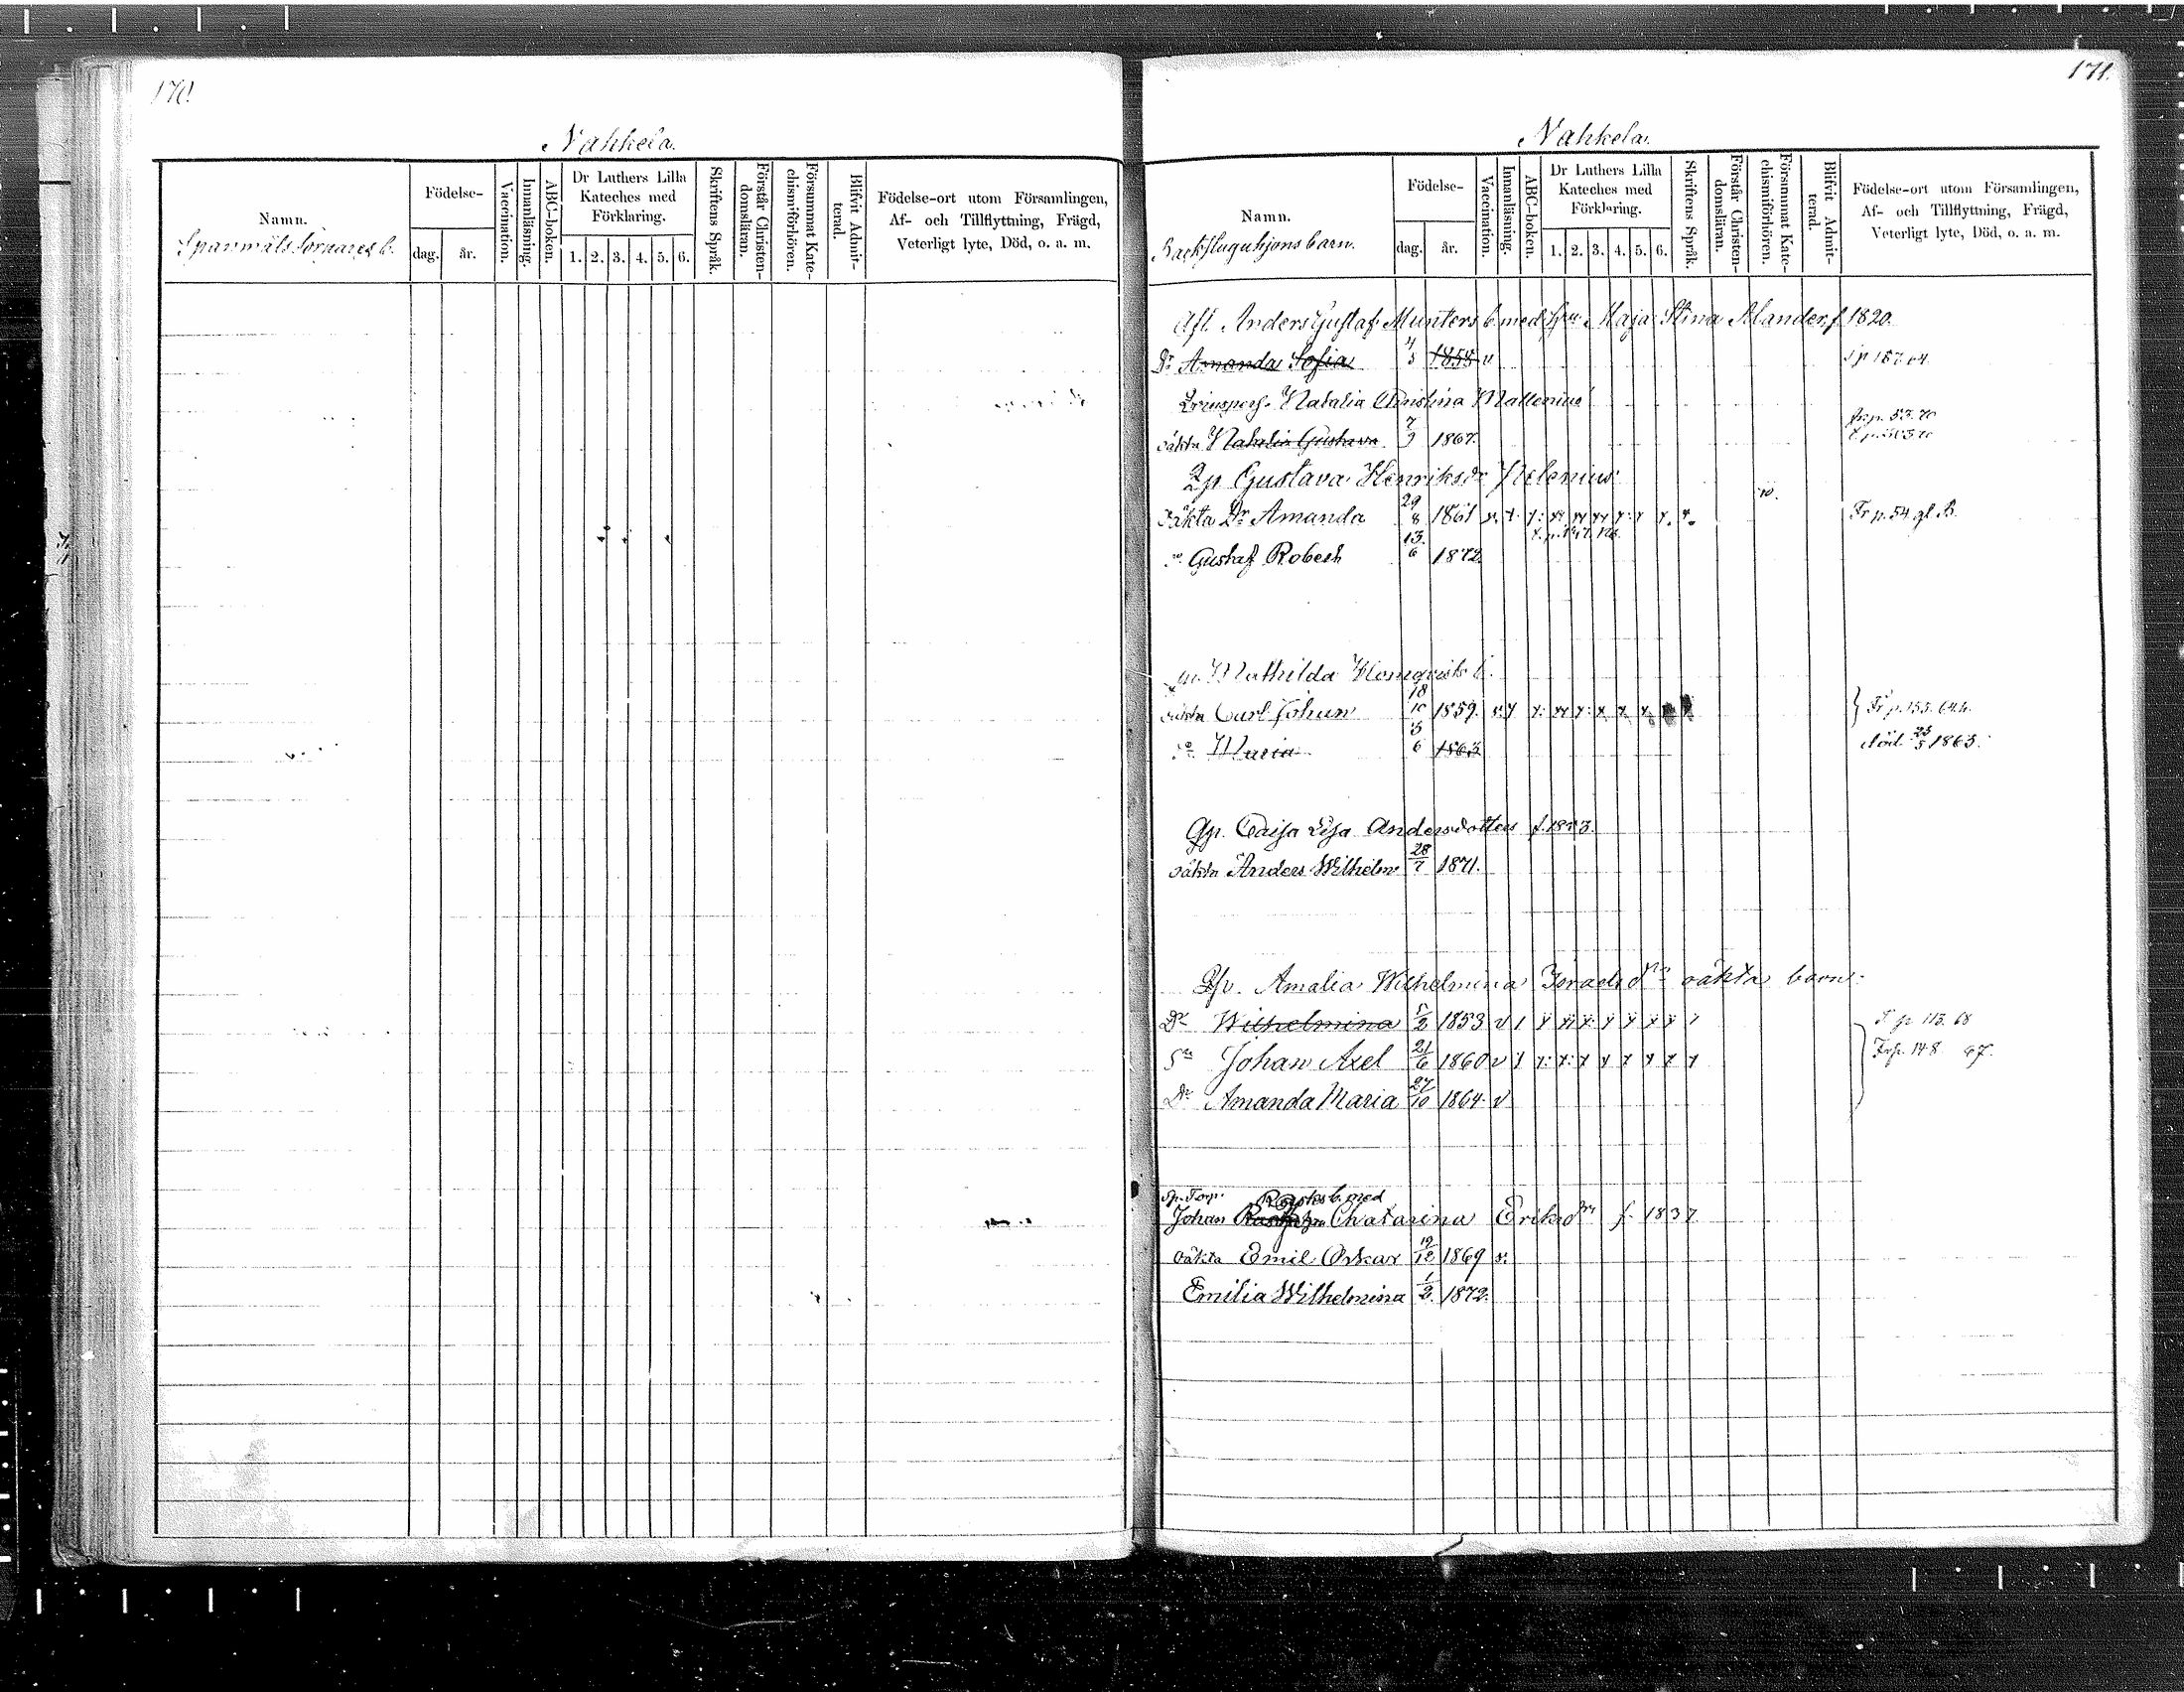 170.
Nahkela.
Namn.
Spanmåls torpares b.
Födelse-
dag. år.
Vaccination.
Innanläsning.
ABC-boken.
Dr Luthers Lilla Kateches med Förklaring.
1. 2. 3. 4. 5. 6.
Skriftens Språk.
Förstår Christen-domsläran.
Försummat Kate-chismiförhören.
Blifvit Admit-terad.
Födelse-ort utom Församlingen,
Af- och Tillflyttning, Frägd,
Veterligt lyte, Död, o. a. m.
171.
Nahkela.
Namn.
Backstuguhjons barn.
Födelse-
dag. år.
Vaccination.
Innanläsning.
ABC-boken.
Dr Luthers Lilla Kateches med Förklaring.
1. 2. 3. 4. 5. 6.
Skriftens Språk.
Förstår Christen-domsläran.
Försummat Kate-chismiförhören.
Blifvit Admit-terad.
Födelse-ort utom Församlingen,
Af- och Tillflyttning, Frägd,
Veterligt lyte, Död, o. a. m.
Afl. Anders Gustaf Munters b. med Hu Maja Stina Alander f. 1820.
Dr Amanda Sofia 1858 v
Natalia Christina Mallenius
oäkta Natalia Gustava 7/9 1867. Frp. 53. 70
Qp Gustava Henriksdr Helenius
oäkta Dr Amanda 29/8 1861 Fr p. 54 gl. B.
So Gustaf Robert 13/6 1872.
Mathilda Homqvists b.
oäkta Carl Johan 18/10 1859. Fr p. 155.
Do Maria 5/6 1863 död 1863.
Qp. Caisa Lisa Andersdotters
oäkta Anders Wilhelm 28/7 1871.
Qp. Amalia Wilhelmina Israelsdrs oäkta barn.
Dr Wilhelmina 1853 v T. p. 113. 68
Sn Johan Axel 21/6 1860 v Frp. 148. 67.
Dr Amanda Maria 27/10 1864. v
Sp. Torp. Rostes b. med
Johan Chatarina Eriksdr f. 1837
oäkta Emil Oskar 19/12 1869 v.
Emilia Wilhelmina 1/2. 1872.